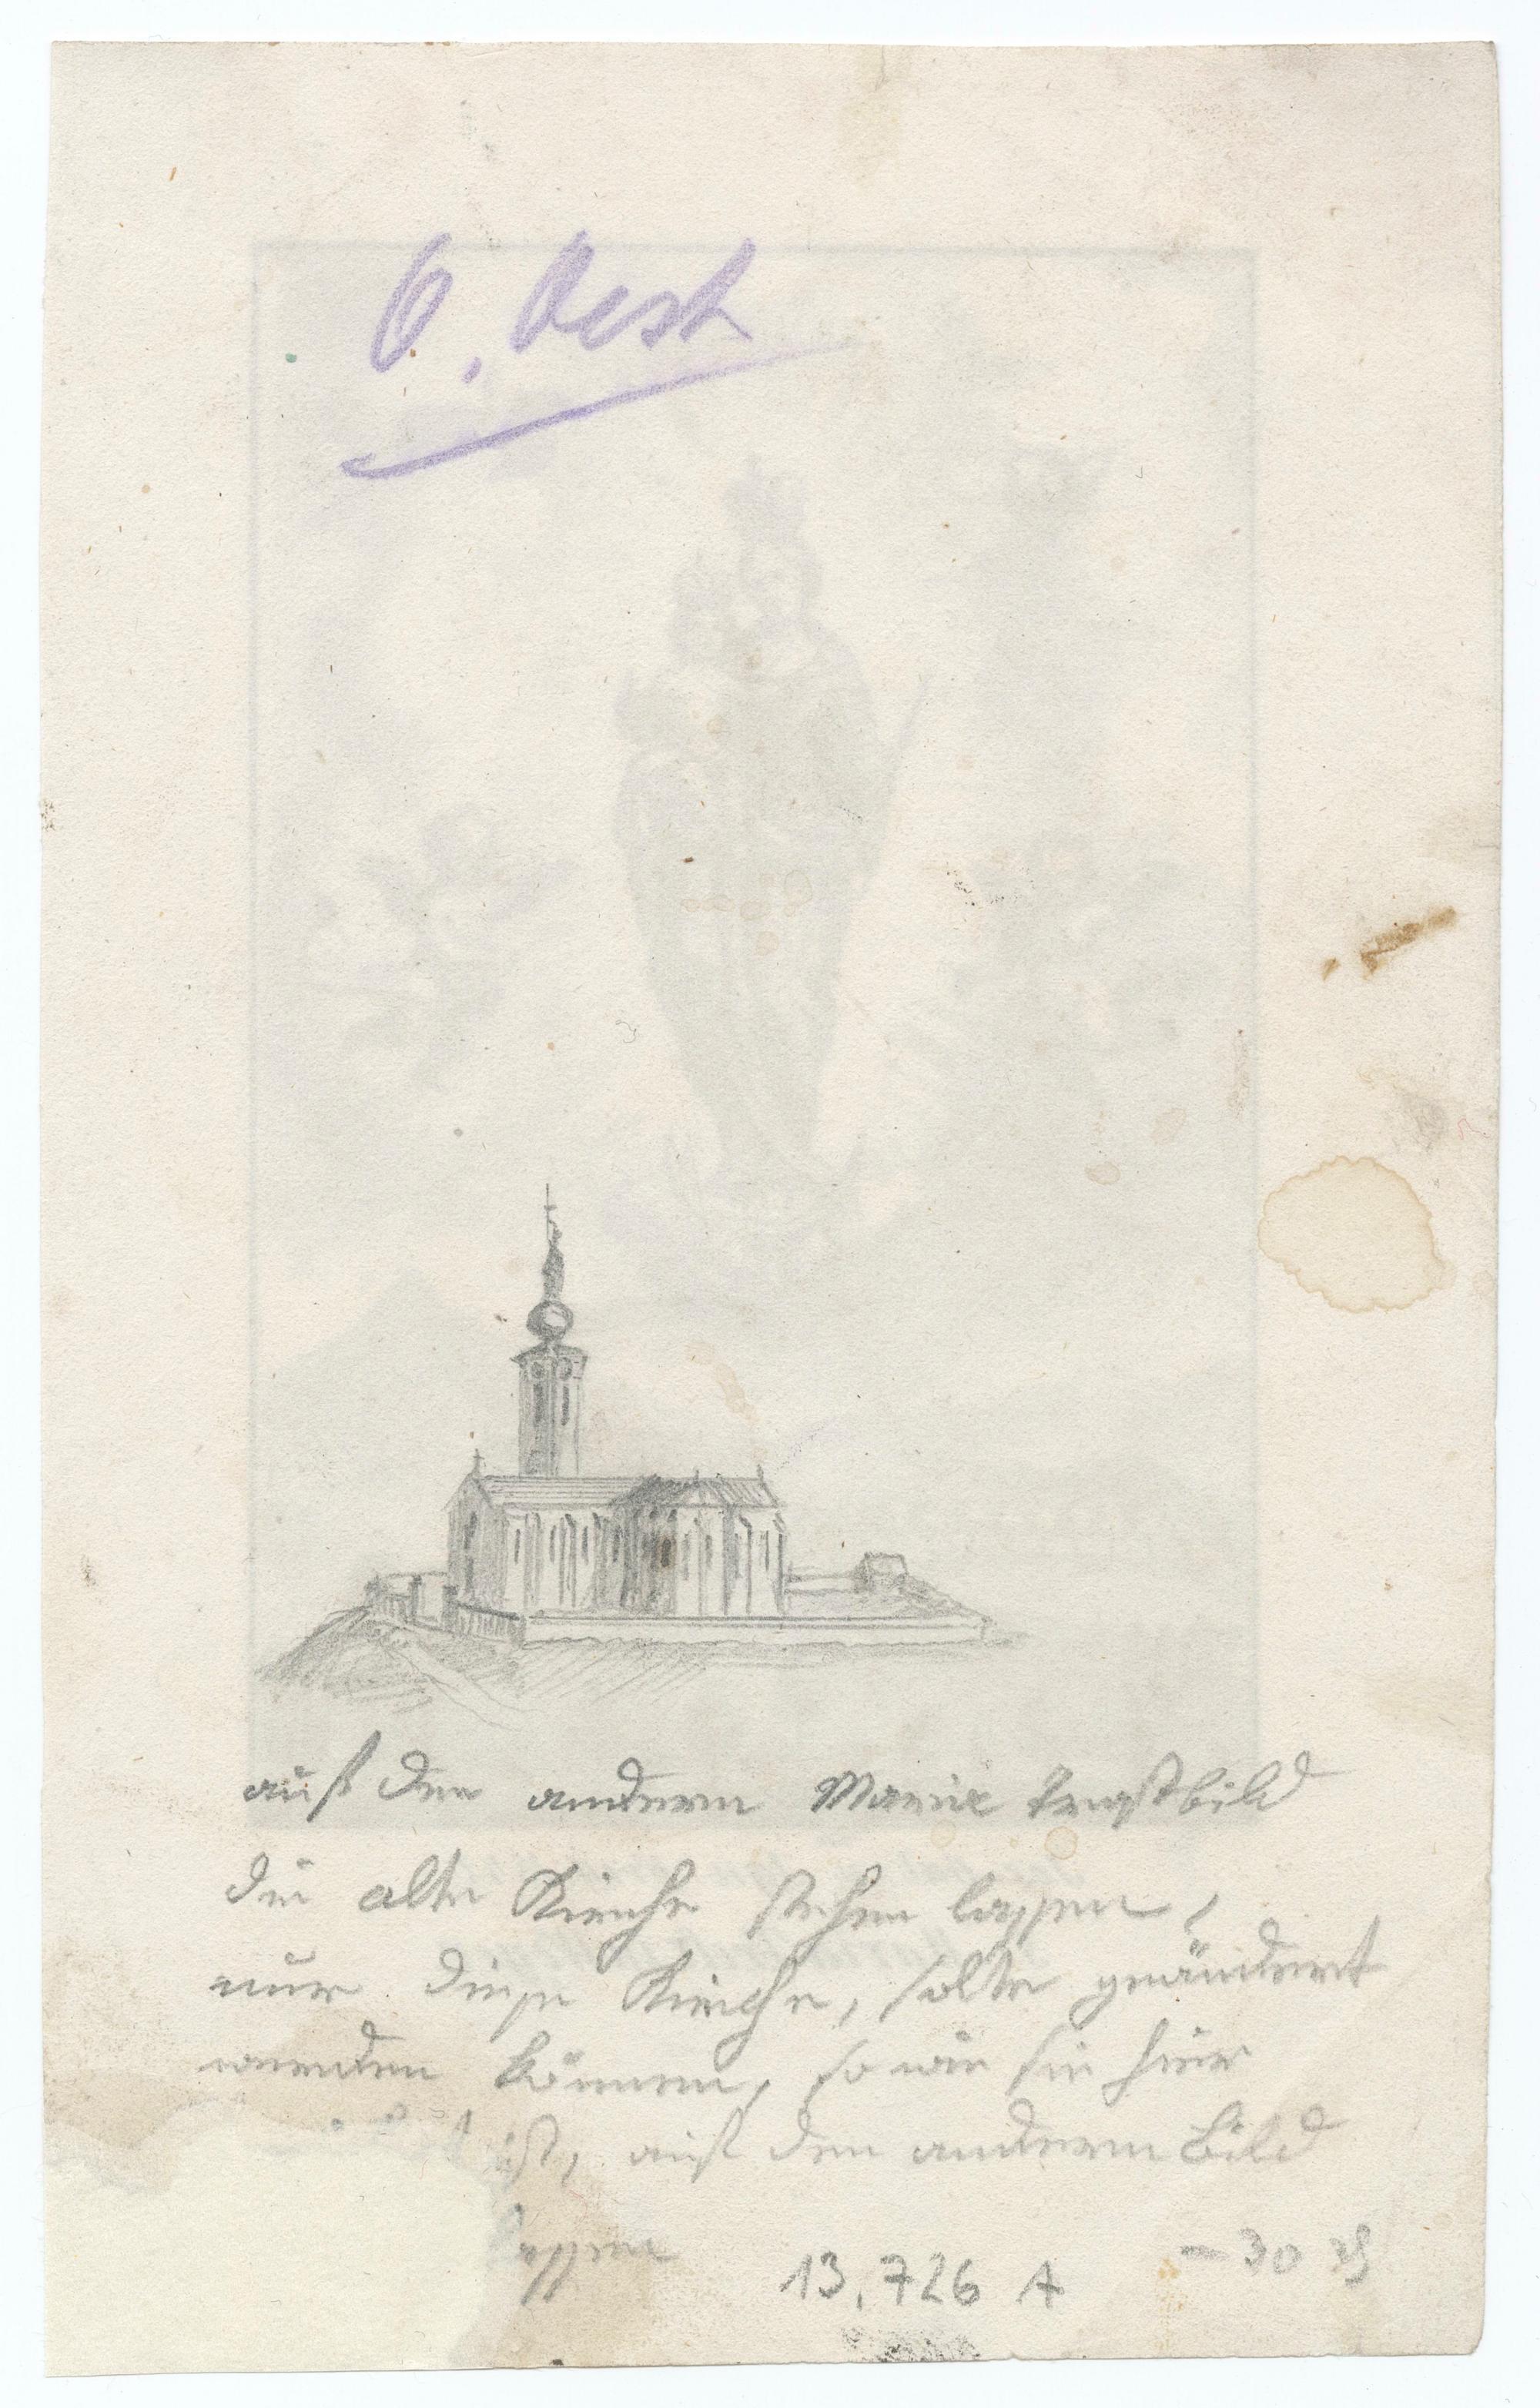 O. Oest
auf den andern Maria Trostbild
die alte Kirche stehen lassen,
nur diese Kirche, solte geändert
werden können, so wie sie hier
ist, auf den andern Bild
lassen
13.726 A
– 30